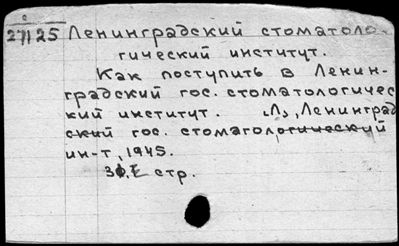 с
27125 Ленинградский стоматоло-
гический институт.
Как поступить в Ленин-
градский гос. стоматологичес
кий институт. Л., Ленинград
ский гос. стоматологический
ин-т, 1945.
стр.